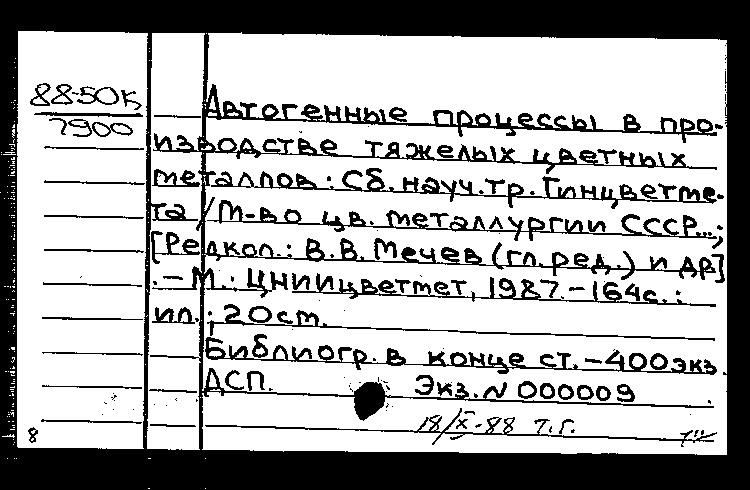 88-50К
7900
Автогенные процессы в про-
изводстве тяжелых цветных
металлов: Сб. науч. тр. Гинцветме-
та / М-во цв. металлургии СССР...;
[Редкол.: В.В. Мечев (гл. ред.) и др]
. - М.: ЦНИИцветмет, 1987. - 164с.:
ил.; 20 cm.
Библиогр. в конце ст. - 400экз.
ДСП. Экз. N 000009
18/X-88 Т.Г.
8